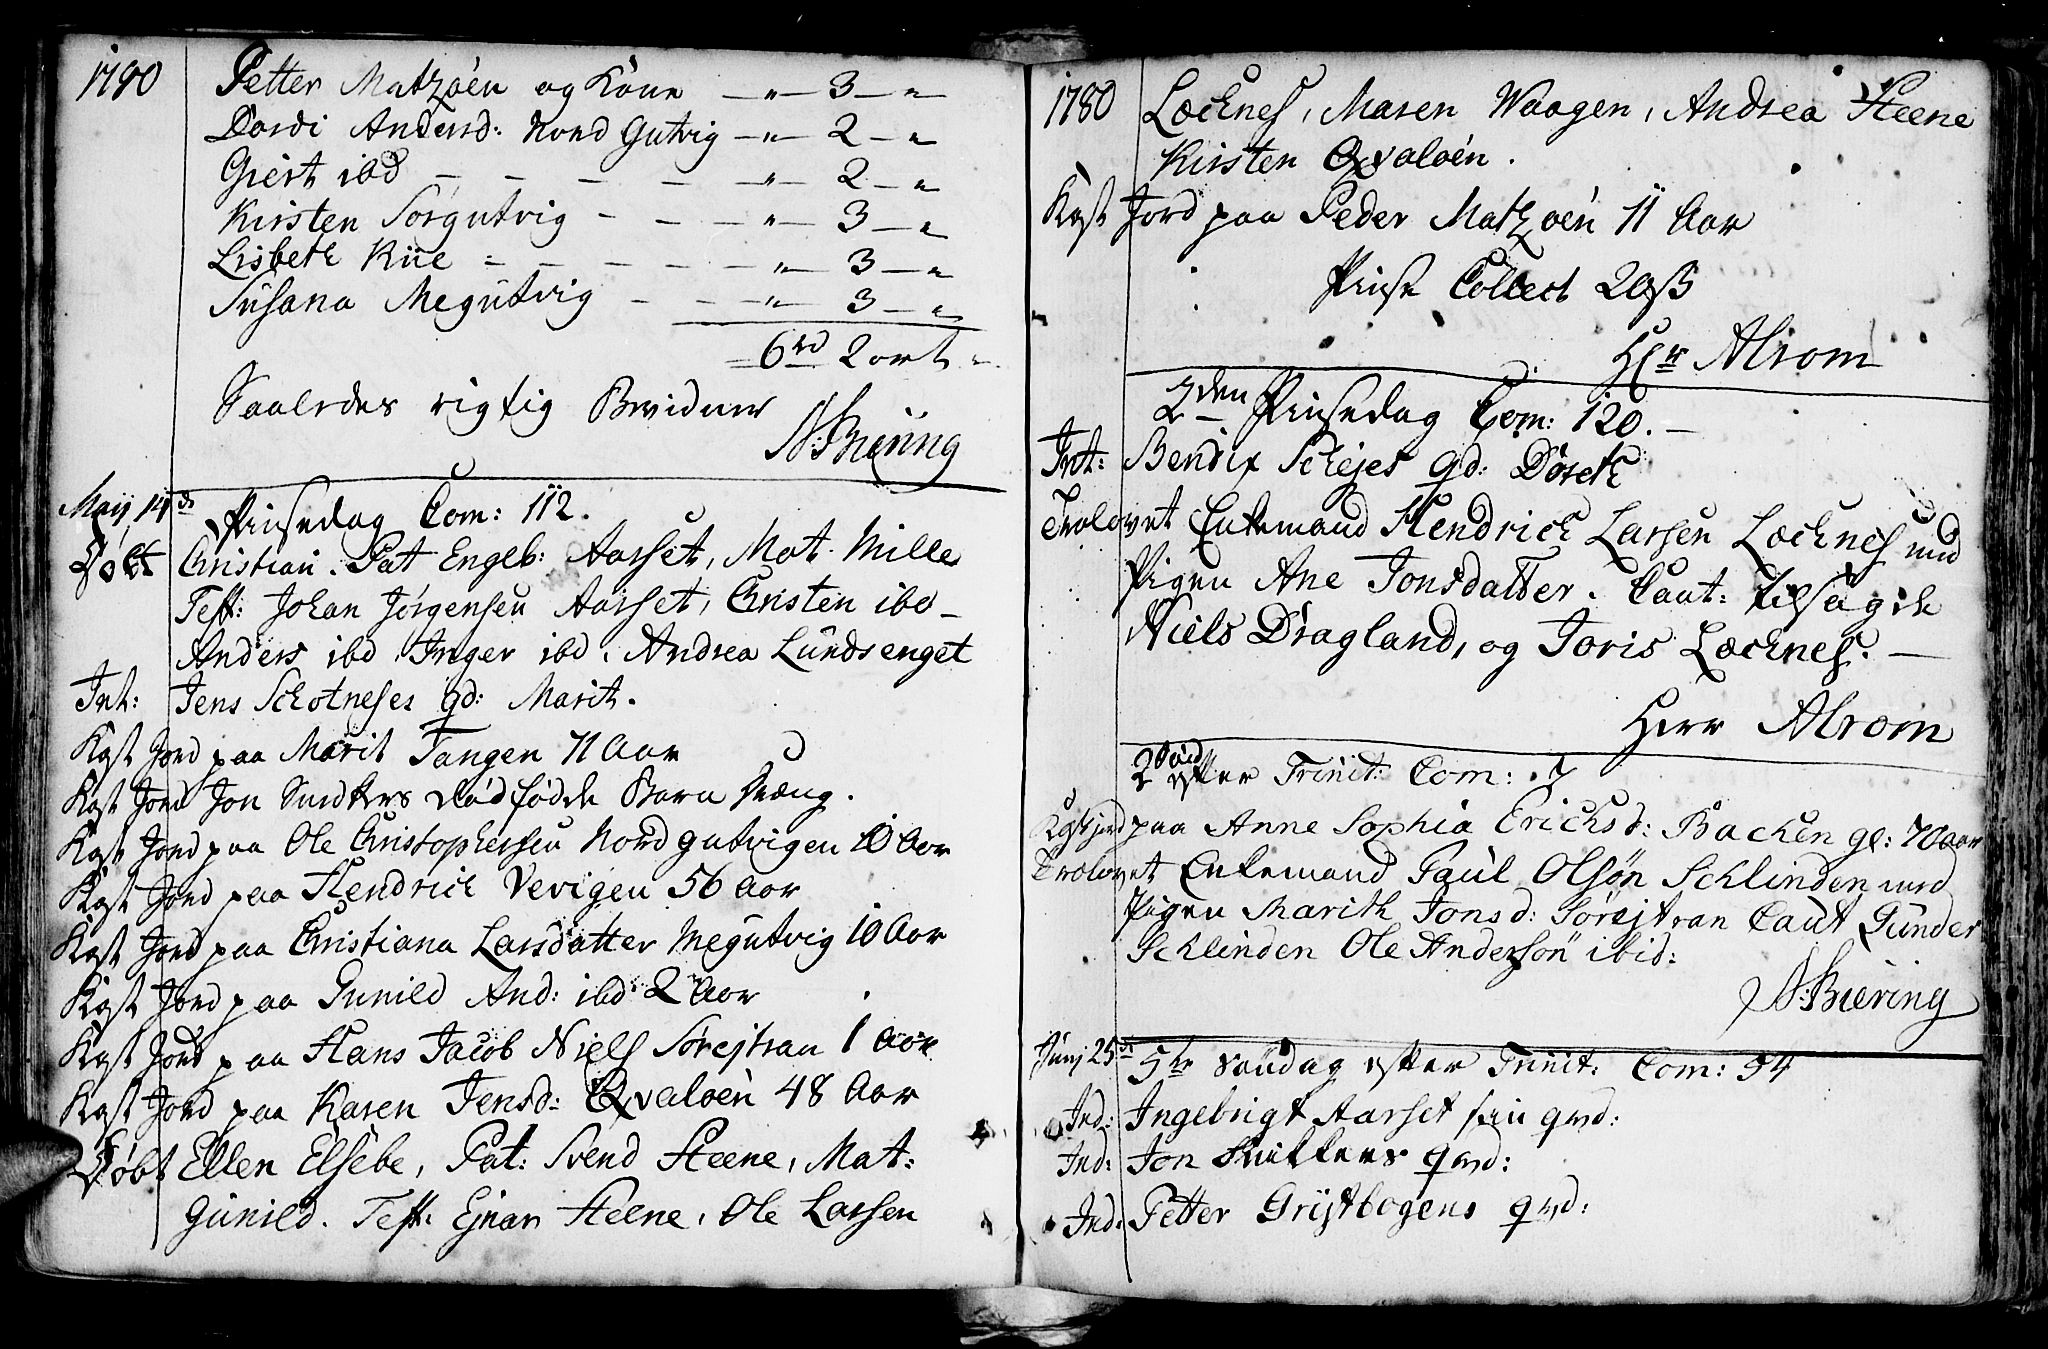 1780
Petter Matzøen og Kone — „ — 3 — „
Dordi Andersd: Nord Gutvig — „ — 2 — „
Giert ibd — — — — — „ — 2 — „
Kirsten Sørgutvig - — — „ — 3 — „
Lisbeth Kiie = — — — — — „ — 3 — „
Susana Megutvig — — — „ — 3 — „
6 rd 2 ort „
Saaledes rigtig Bevidner
N: Biering
May 14 d: Pinsedag Com: 112.
Døbt Christian. Pat Engeb: Aarset, Mat. Mille
Test: Johan Jørgensen Aarset, Christen ibd
Anders ibd, Inger ibd, Andrea Lundsenget
Int: Jens Schotneses qd: Marit.
Kast Jord paa Marit Tangen 71 Aar
Kast Jord Jon dødfødde Barn Dræng.
Kast Jord paa Ole Christophersen Nordgutvigen 10 Aar
Kast Jord paa Hendrich Vevigen 56 Aar
Kast Jord paa Christiana Larsdatter Megutvig 10 Aar
Kast Jord paa Gunild And: ibd 2 Aar
Kast Jord paa Hans Jacob Niels Sørejtran 1 Aar
Kast Jord paa Karen Jensd: Qvaløen 48 Aar
Døbt Ellen Elsebe, Pat: Svend Steene, Mat:
Gunild. Test: Ejnar Steene, Ole Larsen
1780
Lecknes, Maren Waagen, Andrea Steene
Kirsten Qvaløen.
Kast Jord paa Peder Matzøen 11 Aar
Pinse Collect 20 ß
Hr Alrom
2den Pinsedag Com: 120. —
Int: Bendix Schejes qd: Doreth
Trolovet Enkemand Hendrich Larsen Lecknes med
Pigen Ane Jonsdatter. Caut:
Niels Dragland, og Joris Lecknes. —
Herr Alrom
2 Sønd efter Trinit: Com: 7
Kast jord paa Anne Sophia Erichsd: Backen gl: 70 Aar
Trolovet Enkemand Paul Olsøn Schlinden med
Pigen Marith Jonsd: Sørejtran Caut Gunder
Schlinden Ole Anderssøn ibid:
N: Biering
Junj 25 d: 5te Søndag efter Trinit: Com: 94
Ind: Ingebrigt Aarset sin qvd:
Ind: Jon qvd:
Ind: Petter Gristbogens qvd: